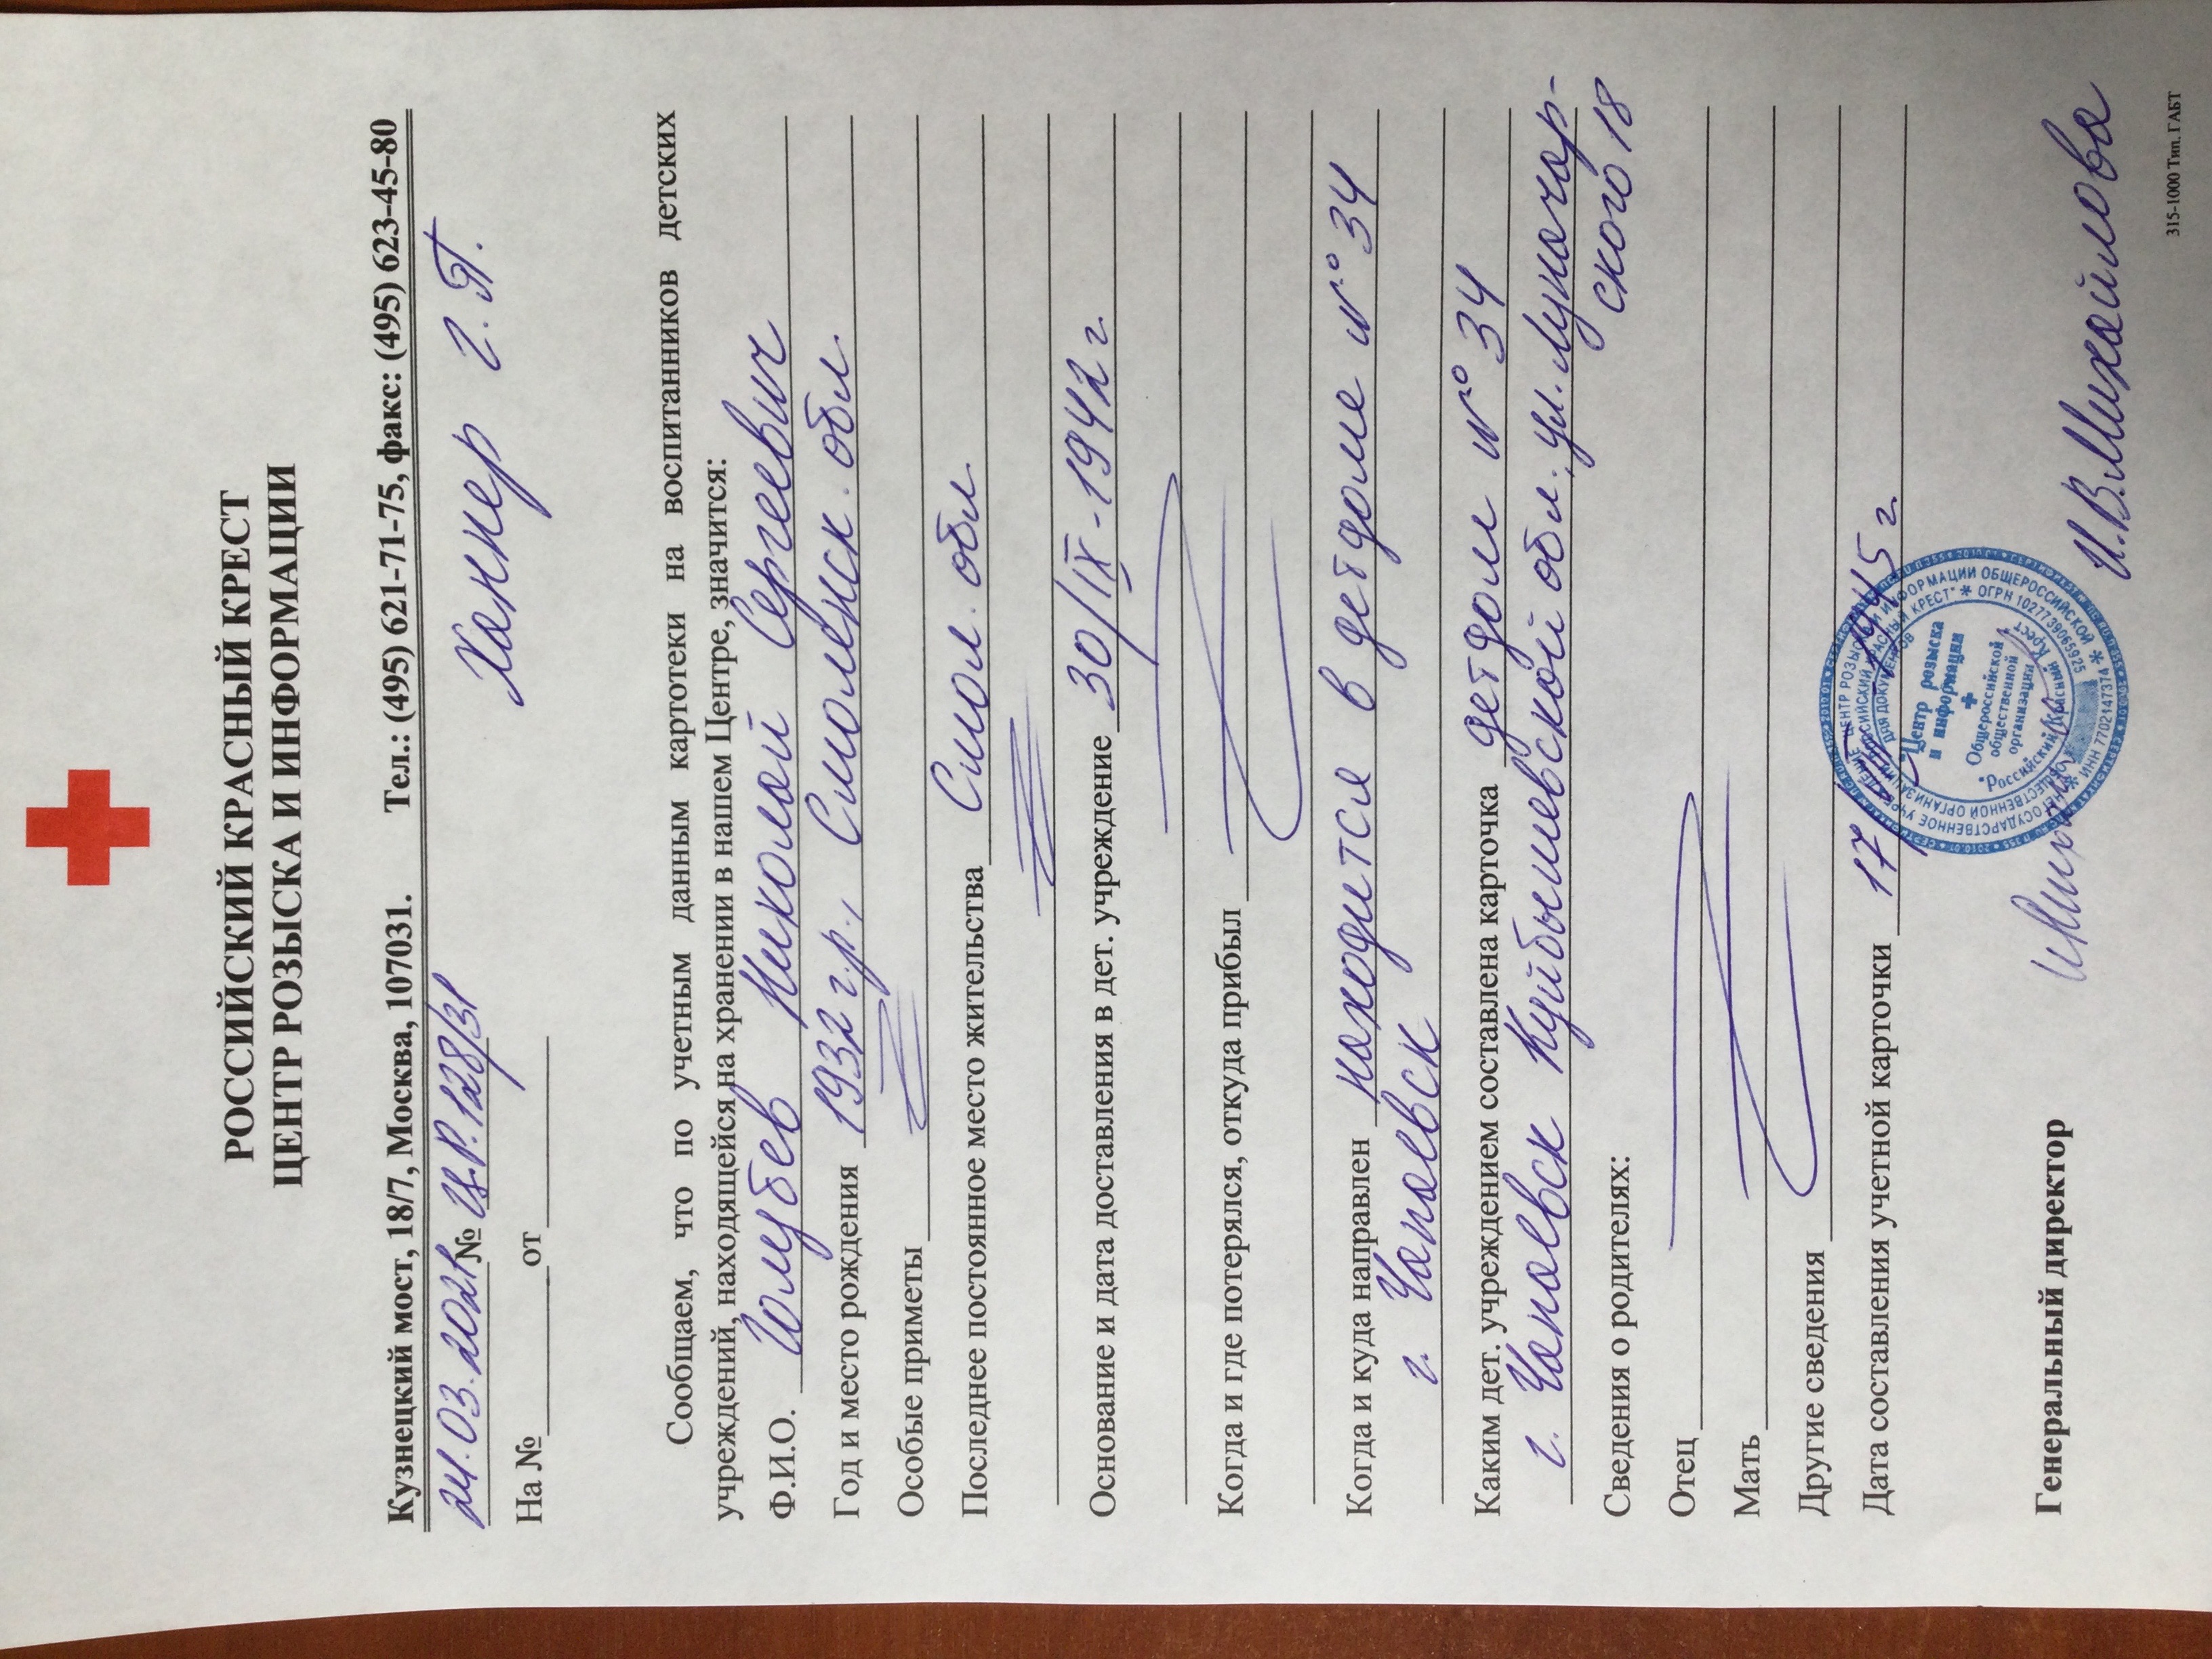 РОССИЙСКИЙ КРАСНЫЙ КРЕСТ
ЦЕНТР РОЗЫСКА И ИНФОРМАЦИИ
Кузнецкий мост, 18/7, Москва, 107031. Тел.: (495) 621-71-75, факс: (495) 623-45-80
24.03.2021 № Ц.Р.128/31 Ханнер Г.П.
На № от
Сообщаем, что по учетным данным картотеки на воспитанников детских
учреждений, находящейся на хранении в нашем Центре, значится:
Ф.И.О. Голубев Николай Сергеевич
Год и место рождения 1932 г.р., Смоленск. обл.
Особые приметы
Последнее постоянное место жительства Смол. обл
Основание и дата доставления в дет. учреждение 30/IX-1942 г.
Когда и где потерялся, откуда прибыл
Когда и куда направлен находится в детдоме № 34
г. Чапаевск
Каким дет. учреждением составлена карточка детдом № 34
г. Чапаевск Куйбышевской обл. ул. Луночар-
ского 18
Сведения о родителях:
Отец
Мать
Другие сведения
Дата составления учетной карточки 17 1945 г.
Центр розыска
и информации
Общероссийской
общественной
организации
"Российский Красный Крест"
Генеральный директор И.В.Михайлова
315-1000 Тип. ГАБТ